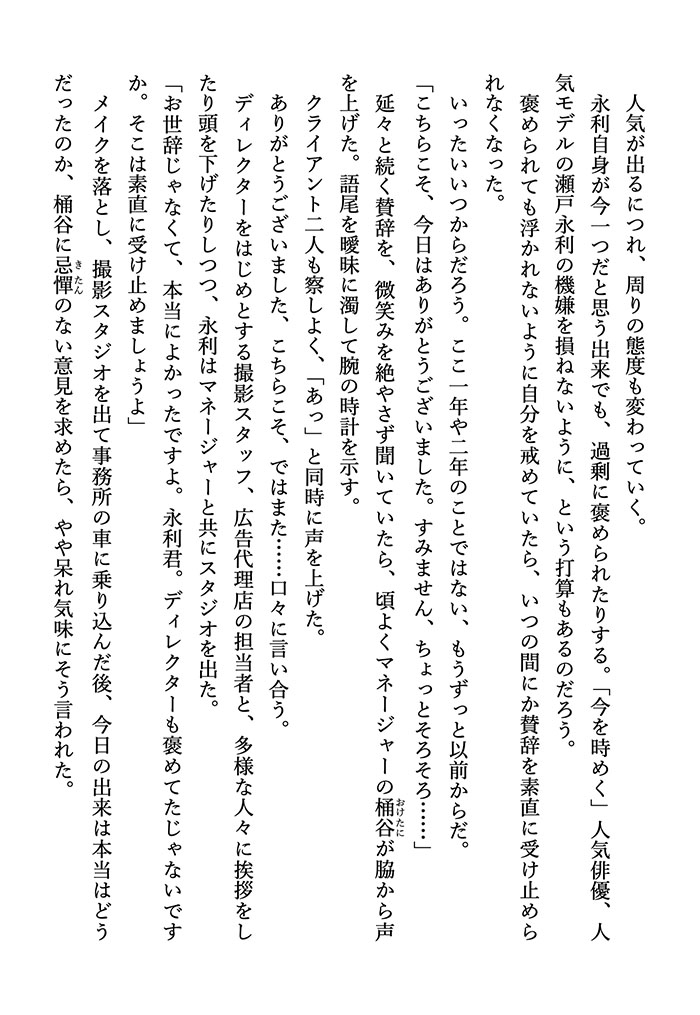 人気が出るにつれ、周りの態度も変わっていく。
　永利自身が今一つだと思う出来でも、過剰に褒められたりする。「今を時めく」人気俳優、人
気モデルの瀬戸永利の機嫌を損ねないように、という打算もあるのだろう。
　褒められても浮かれないように自分を戒めていたら、いつの間にか賛辞を素直に受け止めら
れなくなった。
　いったいいつからだろう。ここ一年や二年のことではない、もうずっと以前からだ。
「こちらこそ、今日はありがとうございました。すみません、ちょっとそろそろ……」
　延々と続く賛辞を、微笑みを絶やさず聞いていたら、頃よくマネージャーの桶谷（おけたに）が脇から声
を上げた。語尾を曖昧に濁して腕の時計を示す。
　クライアント二人も察しよく、「あっ」と同時に声を上げた。
　ありがとうございました、こちらこそ、ではまた……口々に言い合う。
　ディレクターをはじめとする撮影スタッフ、広告代理店の担当者と、多様な人々に挨拶をし
たり頭を下げたりしつつ、永利はマネージャーと共にスタジオを出た。
「お世辞じゃなくて、本当によかったですよ。永利君。ディレクターも褒めてたじゃないです
か。そこは素直に受け止めましょうよ」
　メイクを落とし、撮影スタジオを出て事務所の車に乗り込んだ後、今日の出来は本当はどう
だったのか、桶谷に忌憚（きたん）のない意見を求めたら、やや呆れ気味にそう言われた。